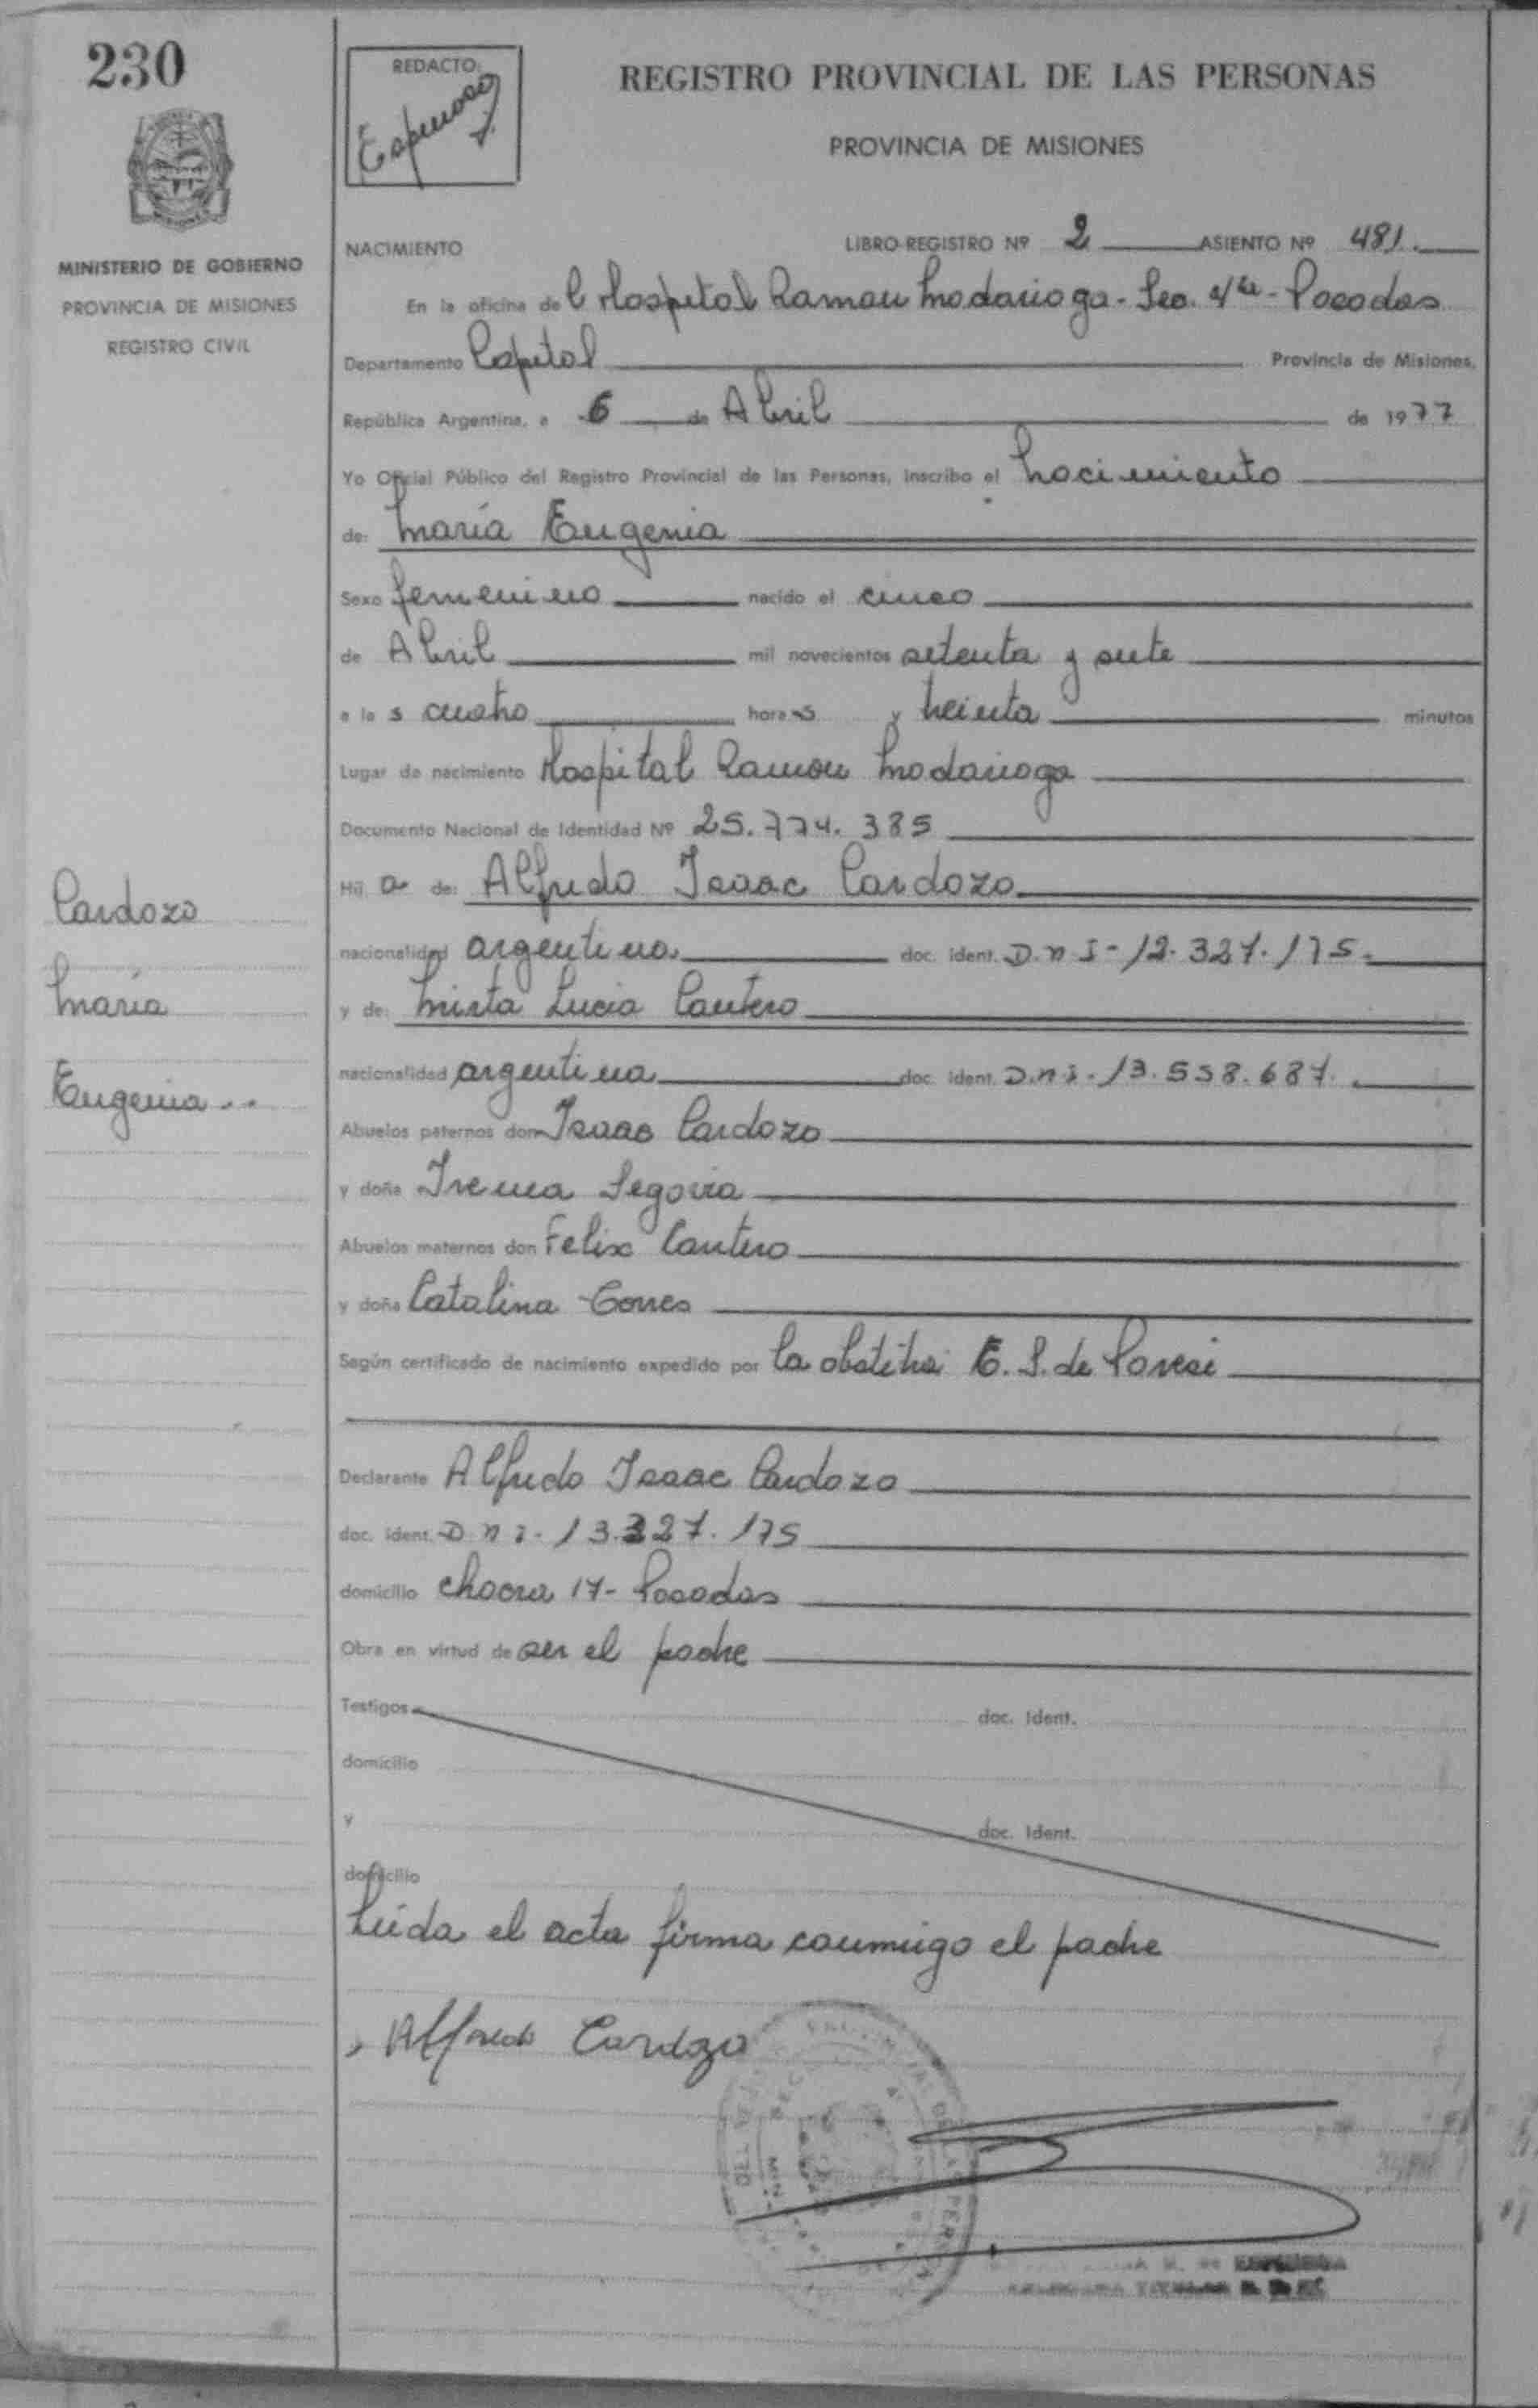 230
REDACTO:
Espinosa
REGISTRO PROVINCIAL DE LAS PERSONAS
PROVINCIA DE MISIONES
MINISTERIO DE GOBIERNO
PROVINCIA DE MISIONES
REGISTRO CIVIL
NACIMIENTO LIBRO-REGISTRO Nº 2 ASIENTO Nº 481.
En la oficina del Hospital Ramon Madariaga - Sec. 4ta - Posadas
Departamento Capital Provincia de Misiones,
República Argentina, a 6 de Abril de 1977
Yo Oficial Público del Registro Provincial de las Personas, inscribo el nacimiento
de: María Eugenia
Sexo femenino nacido el cinco
de Abril mil novecientos setenta y siete
a las cuatro horas y treinta minutos
Lugar de nacimiento Hospital Ramon Madariaga
Documento Nacional de Identidad Nº 25.774.385
Hija de: Alfredo Isaac Cardozo
nacionalidad argentina doc. ident. D.n I - 12.327.175.
y de: Mirta Lucia Cantero
nacionalidad argentina doc. ident. D.n i - 13.558.687.
Abuelos paternos don Isaac Cardozo
y doña Irema Segovia
Abuelos maternos don Felix Cantero
y doña Catalina Torres
Según certificado de nacimiento expedido por la obstetra E. S. de
Declarante Alfredo Isaac Cardozo
doc. ident. D n i - 13.327.175
domicilio chacra 17 - Posadas
Obra en virtud de ser el padre
Testigos doc. Ident.
domicilio
y doc. Ident.
domicilio
Leida el acta firma conmigo el padre
Alfredo Cardozo
Cardozo
María
Eugenia..